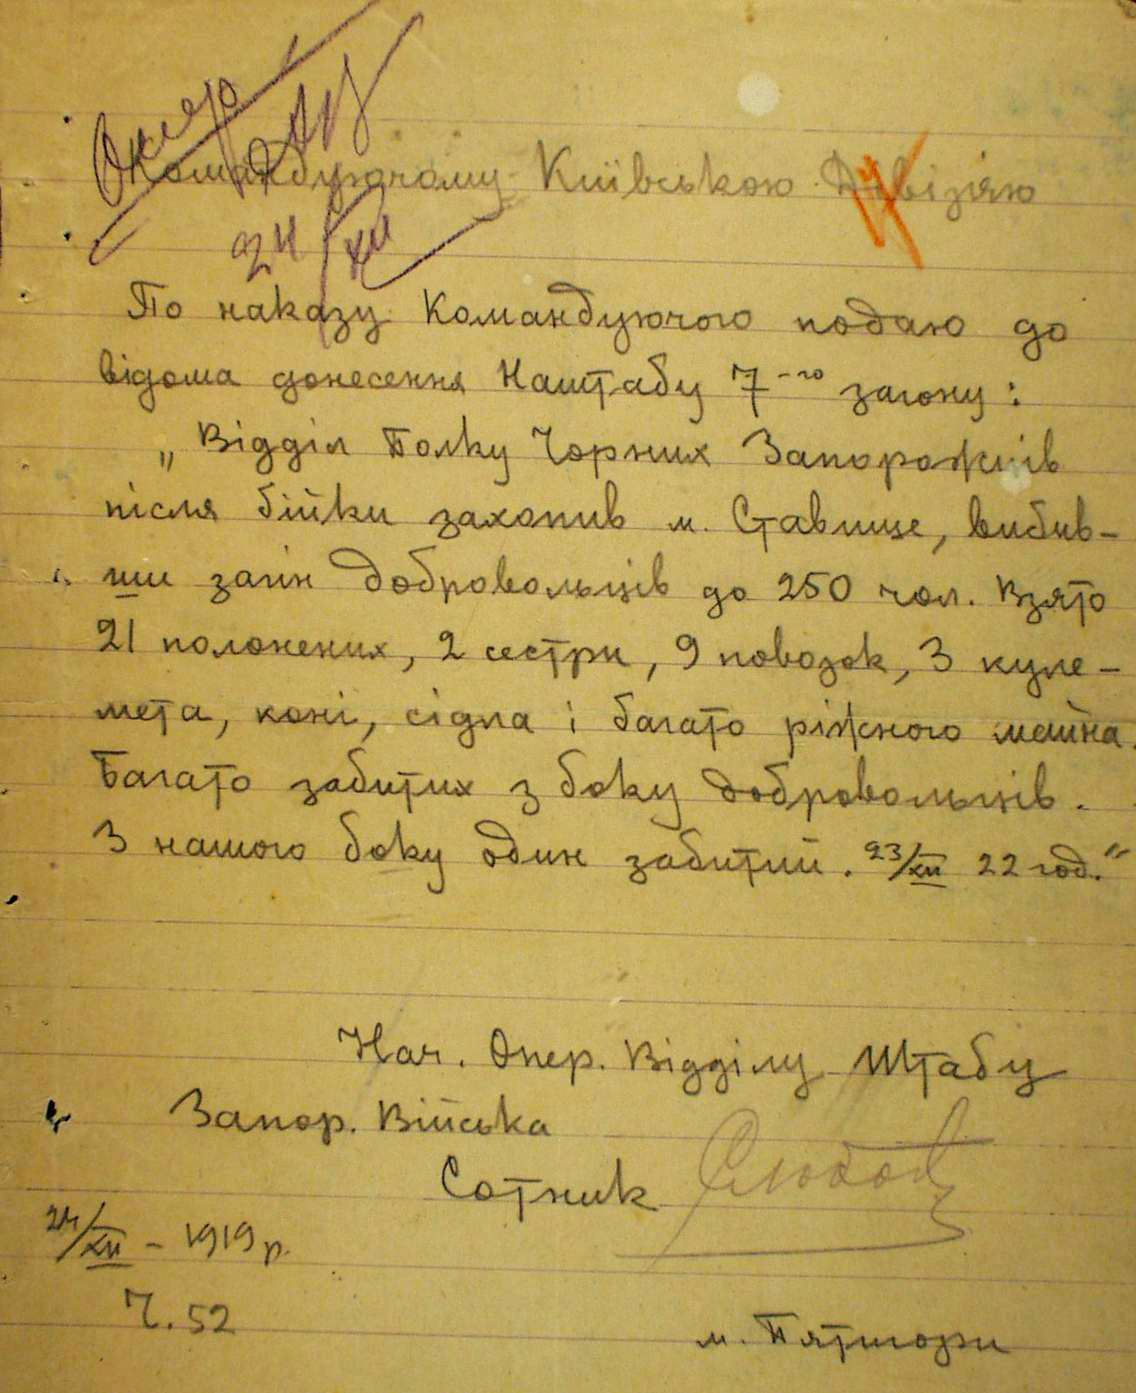 Командуючому Київською Дивізією
24/XII
По наказу Командуючого подаю до
відома донесення Наштабу 7-го загону:
„Відділ Полку Чорних Запорожців
після бійки захопив м. Ставище, вибив-
ши загін добровольців до 250 чол. Взято
21 положених, 2 сестри, 9 повозок, 3 куле-
мета, коні, сідла і багато ріжного майна.
Багато забитих з боку добровольців.
З нашого боку один забитий. 23/XII 22 год."
Нач. Опер. Відділу Штабу
Запор. Війська
Сотник
24/XII - 1919 р.
Ч. 52
м. Пятигори